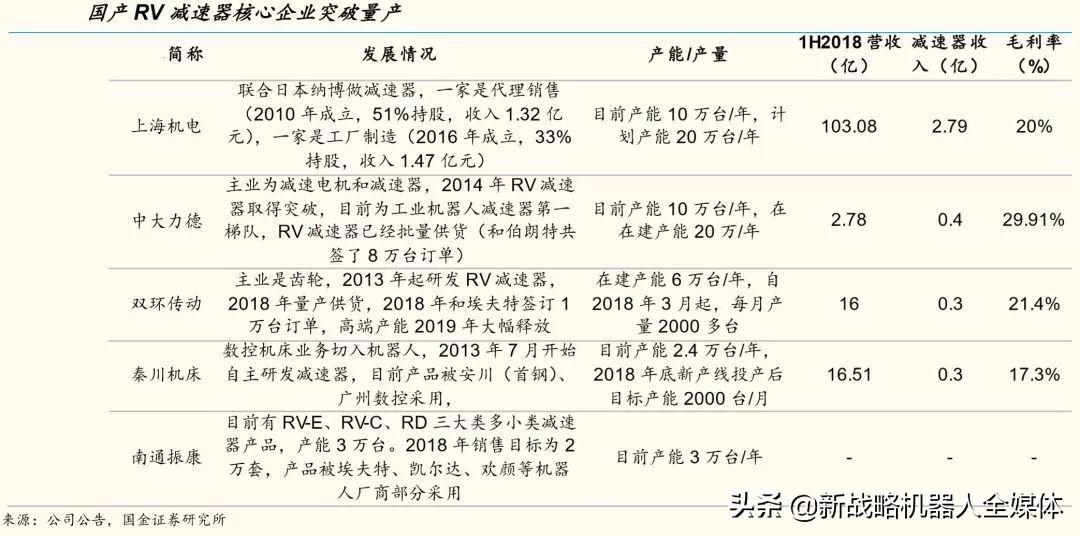 国产 RV 减速器核心企业突破量产
简称 发展情况 产能/产量 1H2018 营收（亿） 减速器收入（亿） 毛利率（%）
上海机电
联合日本纳博做减速器，一家是代理销售
（2010 年成立，51%持股，收入 1.32 亿
元），一家是工厂制造（2016 年成立，33%
持股，收入 1.47 亿元）
目前产能 10 万台/年，计
划产能 20 万台/年
103.08 2.79 20%
中大力德
主业为减速电机和减速器，2014 年 RV 减速
器取得突破，目前为工业机器人减速器第一
梯队，RV 减速器已经批量供货（和伯朗特共
签了 8 万台订单）
目前产能 10 万台/年，在
在建产能 20 万/年
2.78 0.4 29.91%
双环传动
主业是齿轮，2013 年起研发 RV 减速器，
2018 年量产供货，2018 年和埃夫特签订 1
万台订单，高端产能 2019 年大幅释放
在建产能 6 万台/年，自
2018 年 3 月起，每月产
量 2000 多台
16 0.3 21.4%
秦川机床
数控机床业务切入机器人，2013 年 7 月开始
自主研发减速器，目前产品被安川（首钢）、
广州数控采用，
目前产能 2.4 万台/年，
2018 年底新产线投产后
目标产能 2000 台/月
16.51 0.3 17.3%
南通振康
目前有 RV-E、RV-C、RD 三大类多小类减速
器产品，产能 3 万台。2018 年销售目标为 2
万套，产品被埃夫特、凯尔达、欢颜等机器
人厂商部分采用
目前产能 3 万台/年
- - -
来源：公司公告，国金证券研究所
头条 @新战略机器人全媒体